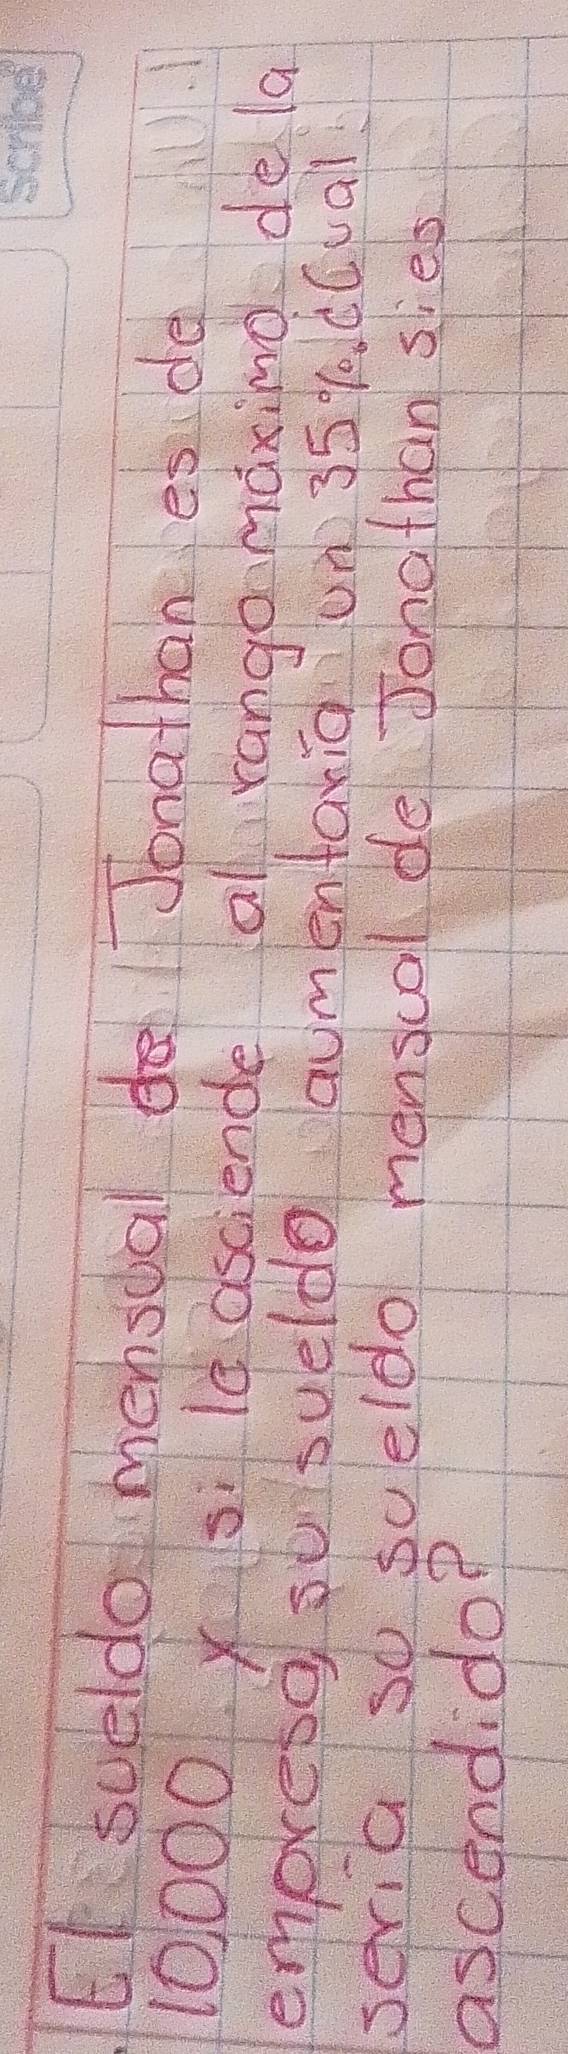 Scribe
El sueldo mensual de Jonathan es de
10,000 y si le asciende al rango máximo de la
empresa, su sueldo aumentaría un 35%. ¿Cual
sería su sueldo menscal de Jonathan si es
ascendido?